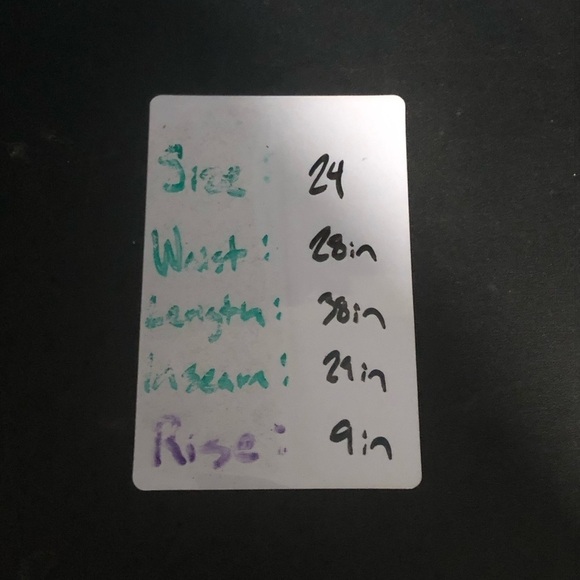 Size: 24
Waist: 28in
Length: 38in
Inseam: 29in
Rise: 9in